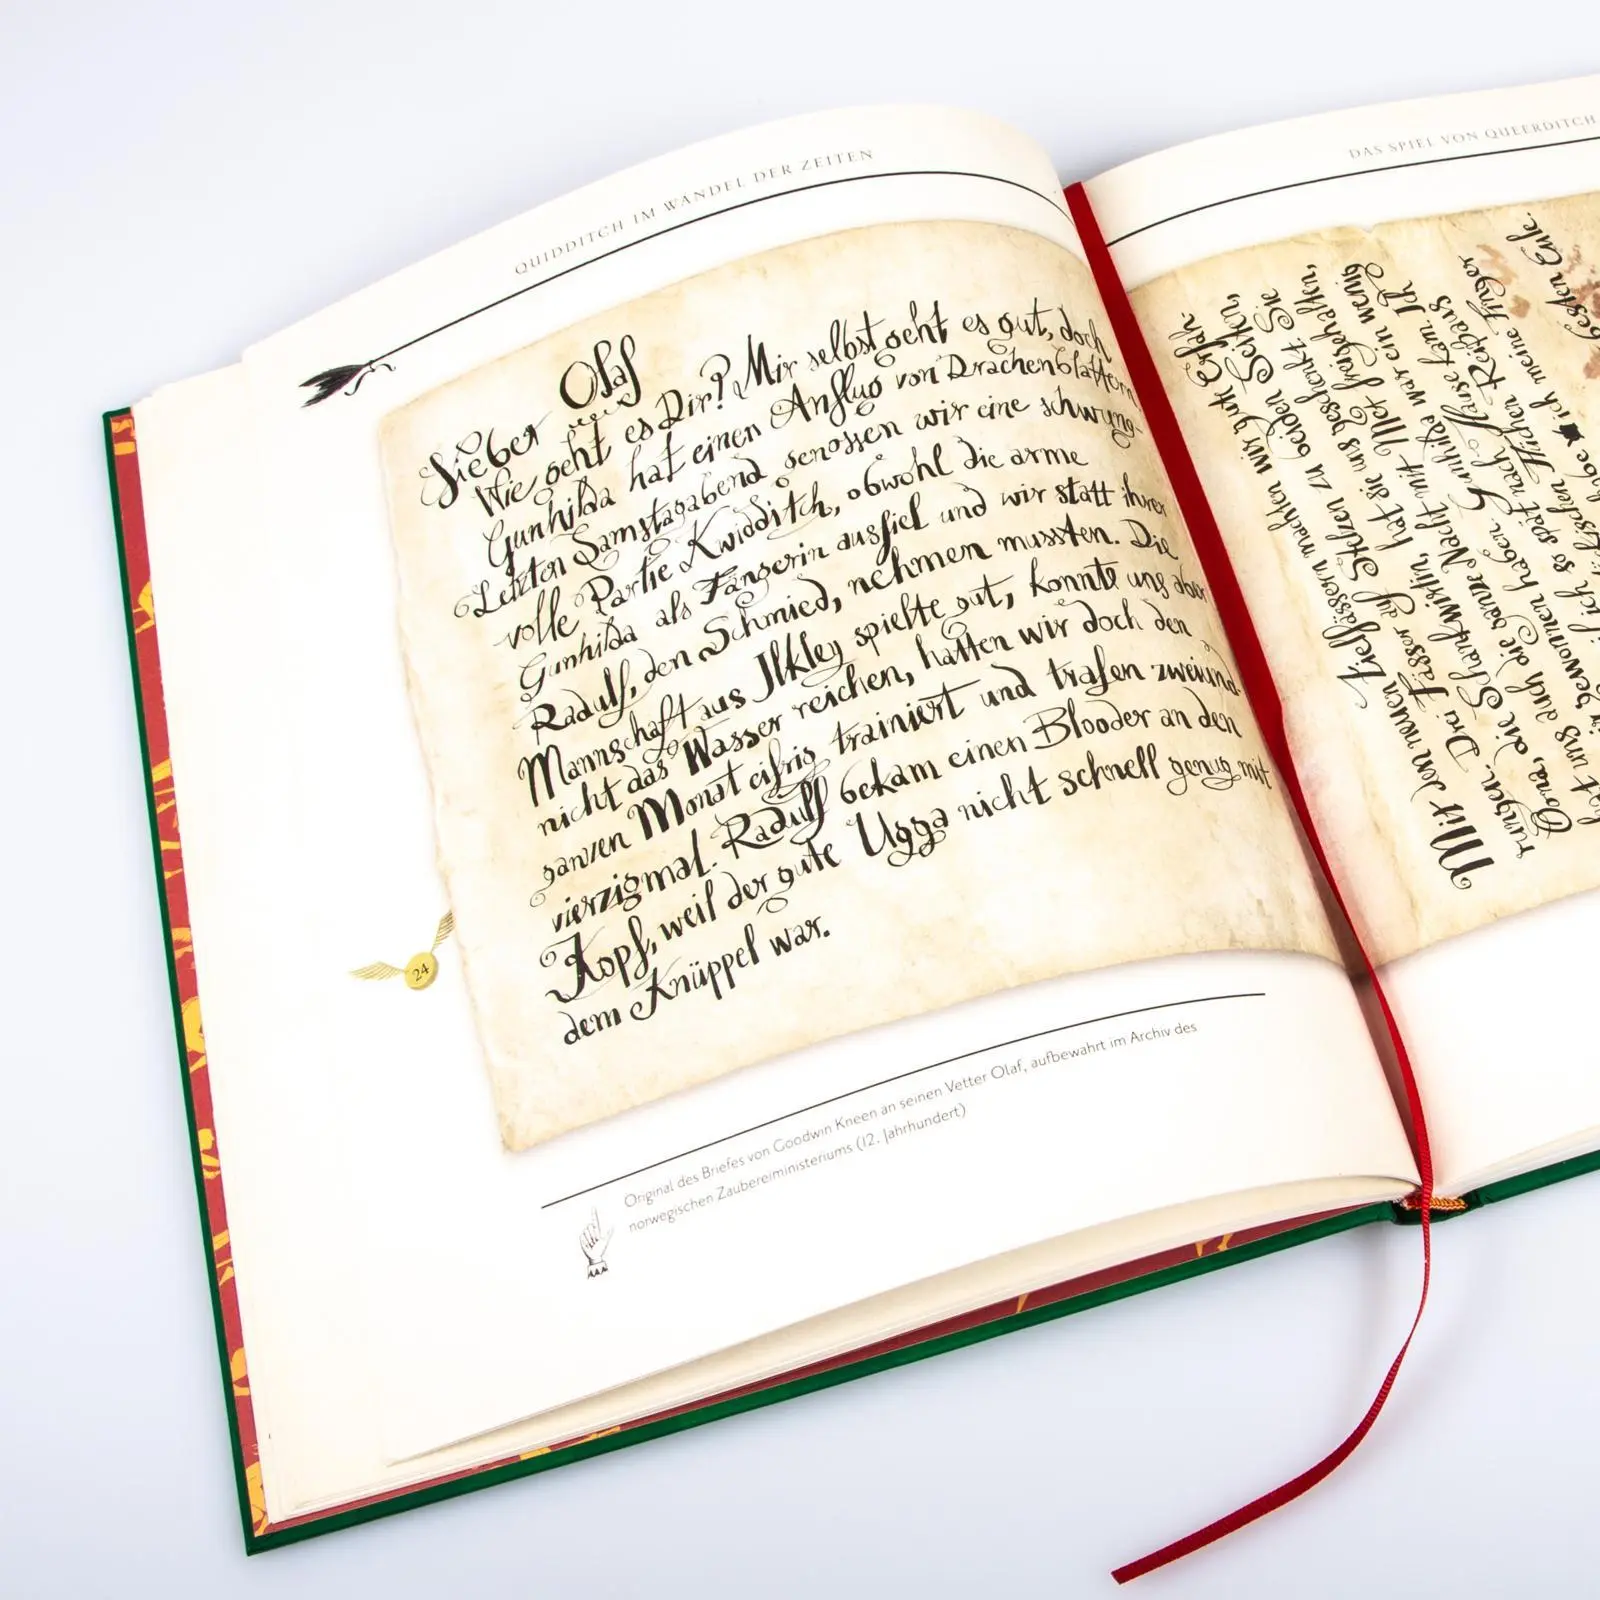 QUIDDITCH IM WANDEL DER ZEITEN
Lieber Olaf
Wie geht es Dir? Mir selbst geht es gut, doch
Gunhilda hat einen Anflug von Drachenblattern.
Letzten Samstagabend genossen wir eine schwung-
volle Partie Kwidditch, obwohl die arme
Gunhilda als Fängerin ausfiel und wir statt ihrer
Radulf, den Schmied, nehmen mussten. Die
Mannschaft aus Ilkley spielte gut, konnte uns aber
nicht das Wasser reichen, hatten wir doch den
ganzen Monat eifrig trainiert und trafen zweiund-
vierzigmal. Radulf bekam einen Blooder an den
Kopf, weil der gute Ugga nicht schnell genug mit
dem Knüppel war.
24
Original des Briefes von Goodwin Kneen an seinen Vetter Olaf, aufbewahrt im Archiv des
norwegischen Zaubereiministeriums (12. Jahrhundert)
DAS SPIEL VON QUEERDITCH
Mit den neuen Zielfässern machten wir gute Erfah-
rungen. Drei Fässer auf Stelzen zu beiden Seiten,
Oona, die Schankwirtin, hat sie uns geschenkt. Sie
hat uns auch die ganze Nacht mit Met freigehalten,
gewonnen haben. Gunhilda war ein wenig
ich so spät nach Hause kam. Ich
Reißaus
ich meine Finger
besten Eule.